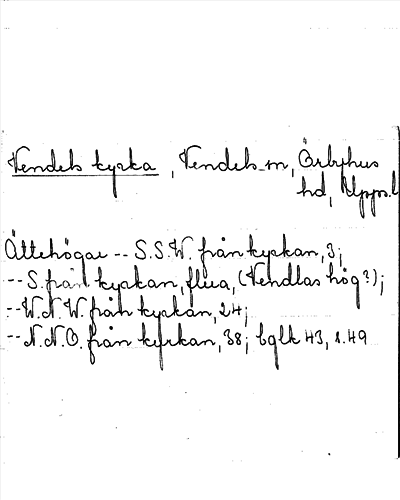 Vendels kyrka, Vendels sn, Örbyhus
hd, Uppl.
Ättehögar -- S.S.W. från kyrkan, 3;
-- S. från kyrkan, flera, (Vendlas hög?);
-- W.N.W. från kyrkan, 24;
-- N.N.O. från kyrkan, 38; bglk 43, s. 49